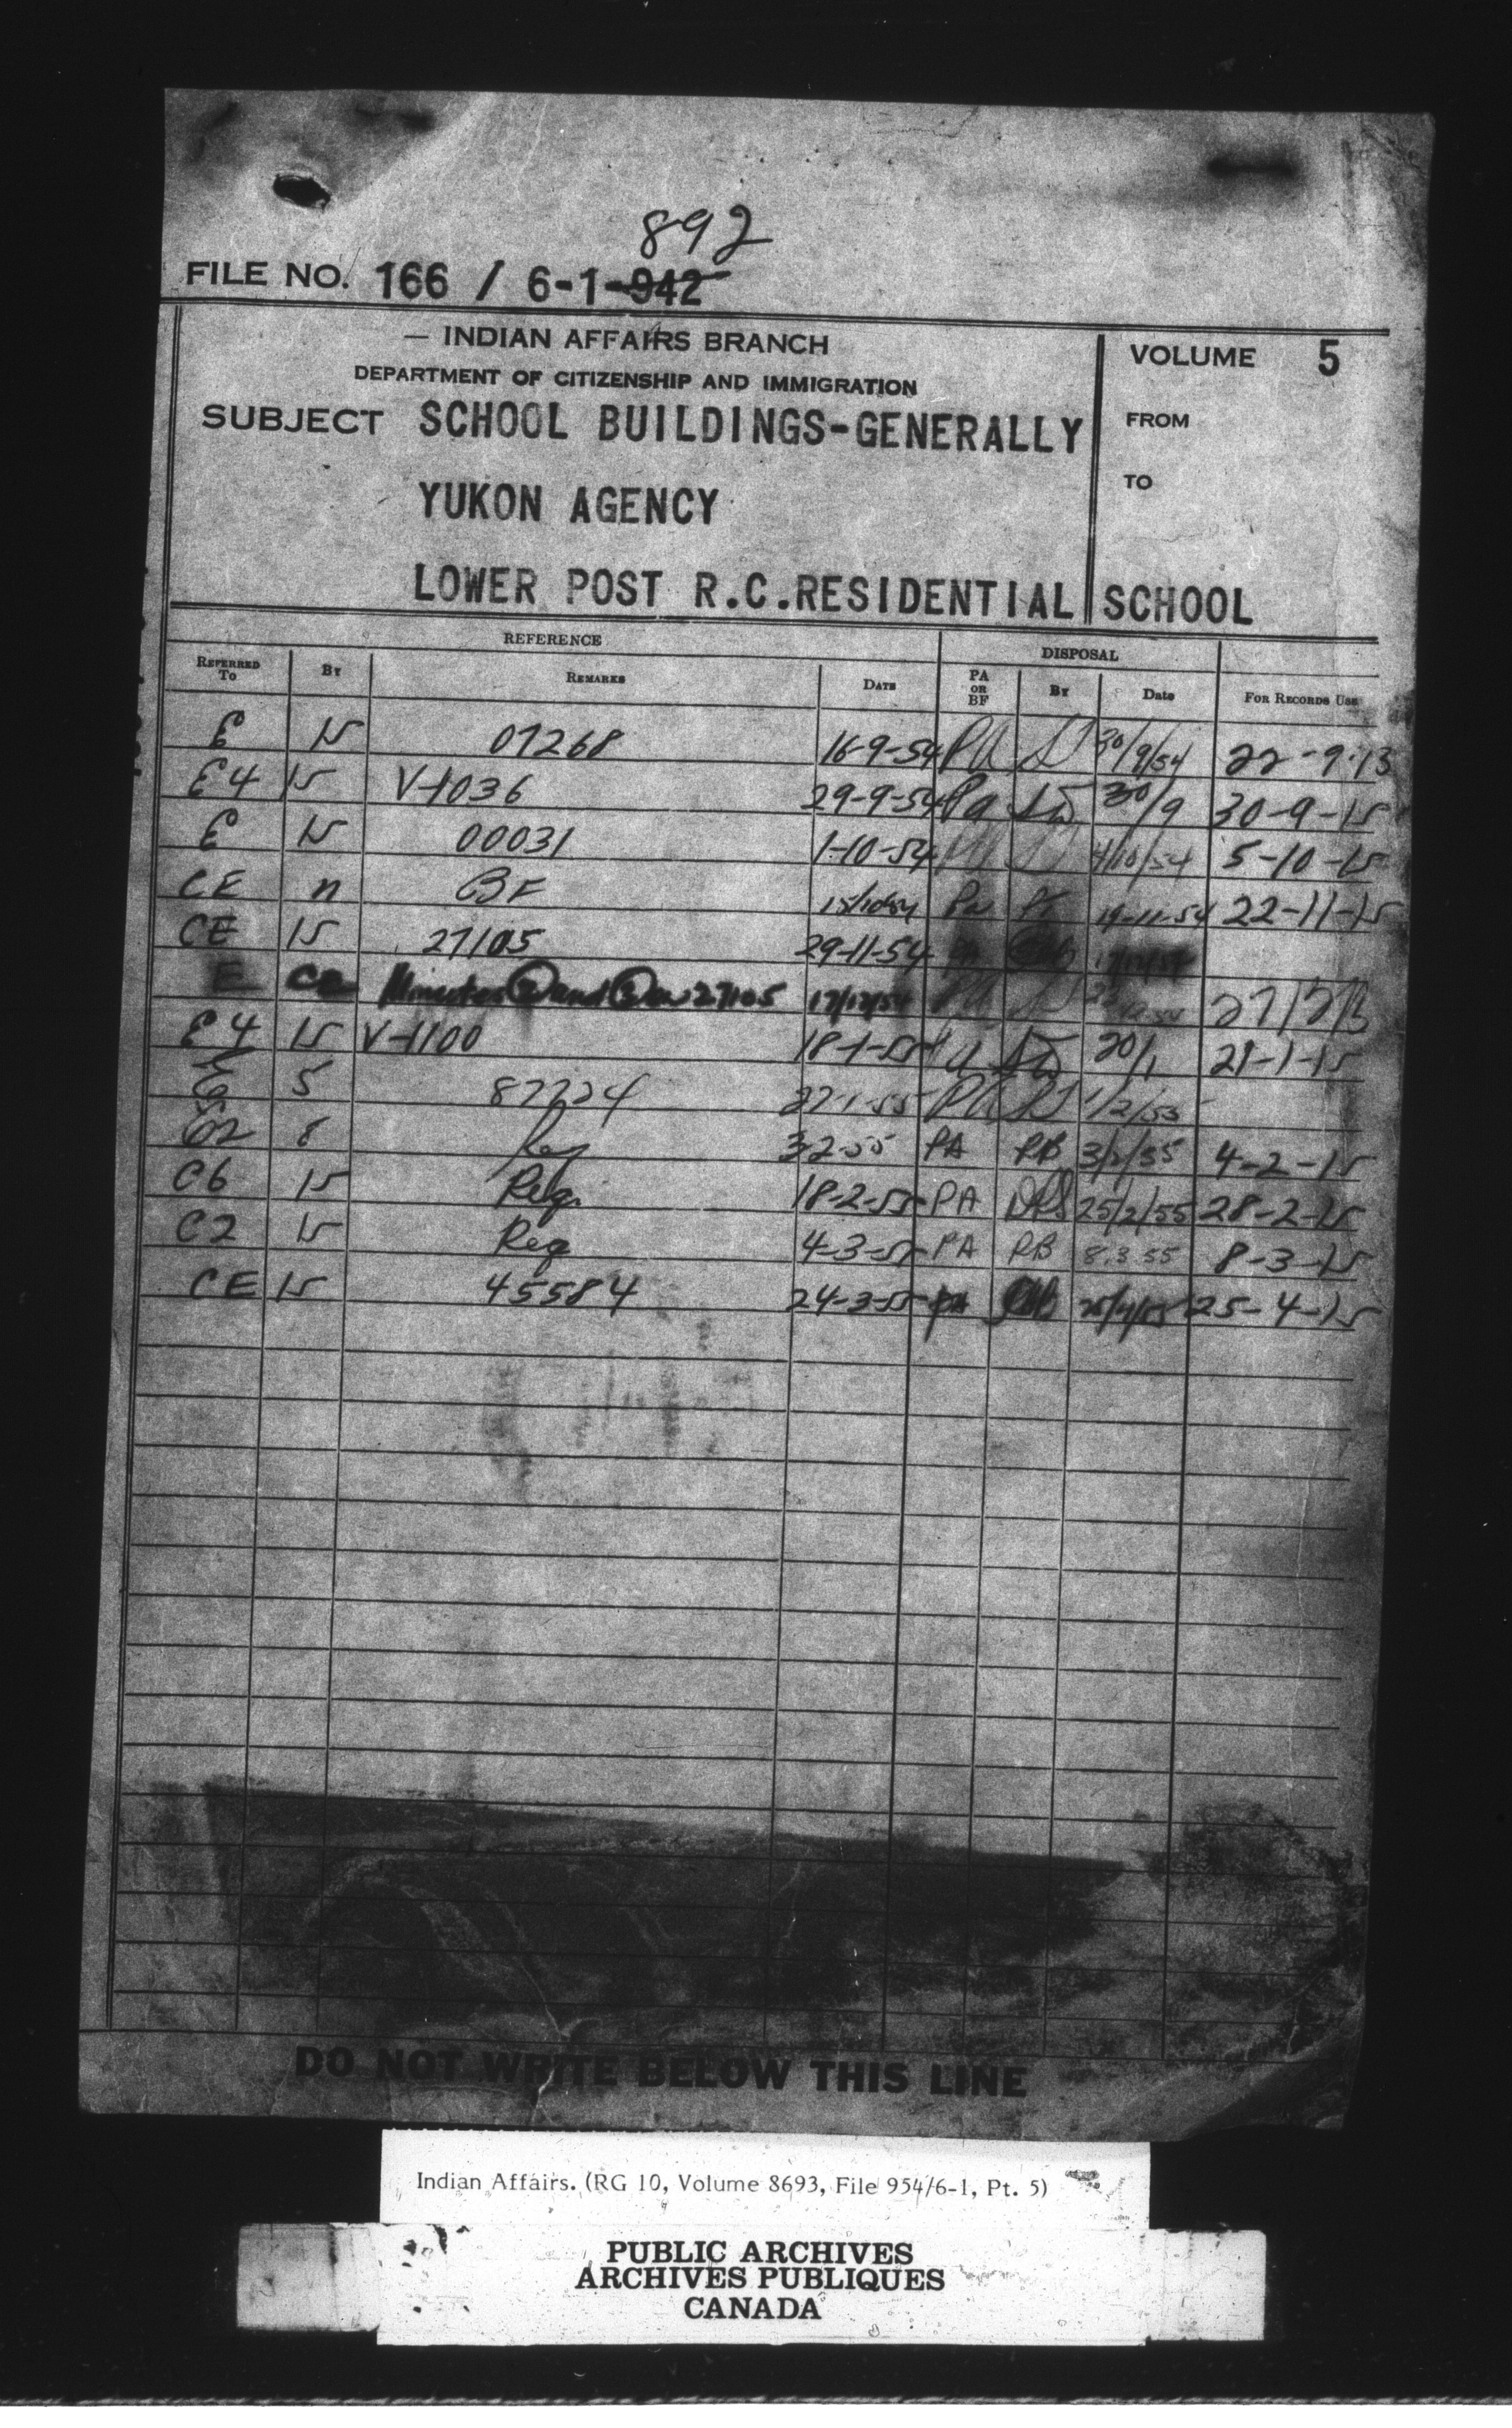 892
FILE NO. 166 / 6-1-942
— INDIAN AFFAIRS BRANCH
DEPARTMENT OF CITIZENSHIP AND IMMIGRATION
VOLUME 5
SUBJECT SCHOOL BUILDINGS-GENERALLY
FROM
YUKON AGENCY
TO
LOWER POST R.C. RESIDENTIAL SCHOOL
REFERENCE DISPOSAL
REFERRED TO BY REMARKS DATE PA OR BF BY Date FOR RECORDS USE
E 15 07268 16-9-54 PA 30/9/54 22-9-13
E4 15 V-1036 29-9-54 Pa 30/9 30-9-15
E 15 00031 1-10-54 4/10/54 5-10-15
CE n BF 15/10/54 PA 19-11-54 22-11-15
CE 15 27105 29-11-54 PA
E CE Minutes 2 and 3 on 27105 17/12/54 PA
E4 15 V-1100 18-1-55 20/1 21-1-15
E 5 87724 27-1-55 PA 1/2/55
E2 8 Req 3-2-55 PA RB 3/2/55 4-2-15
C6 15 Req. 18-2-55 PA 25/2/55 28-2-15
C2 15 Req 4-3-55 PA RB 8.3.55 8-3-15
CE 15 45584 24-3-55 PA 25-4-15
DO NOT WRITE BELOW THIS LINE
Indian Affairs. (RG 10, Volume 8693, File 954/6-1, Pt. 5)
PUBLIC ARCHIVES
ARCHIVES PUBLIQUES
CANADA